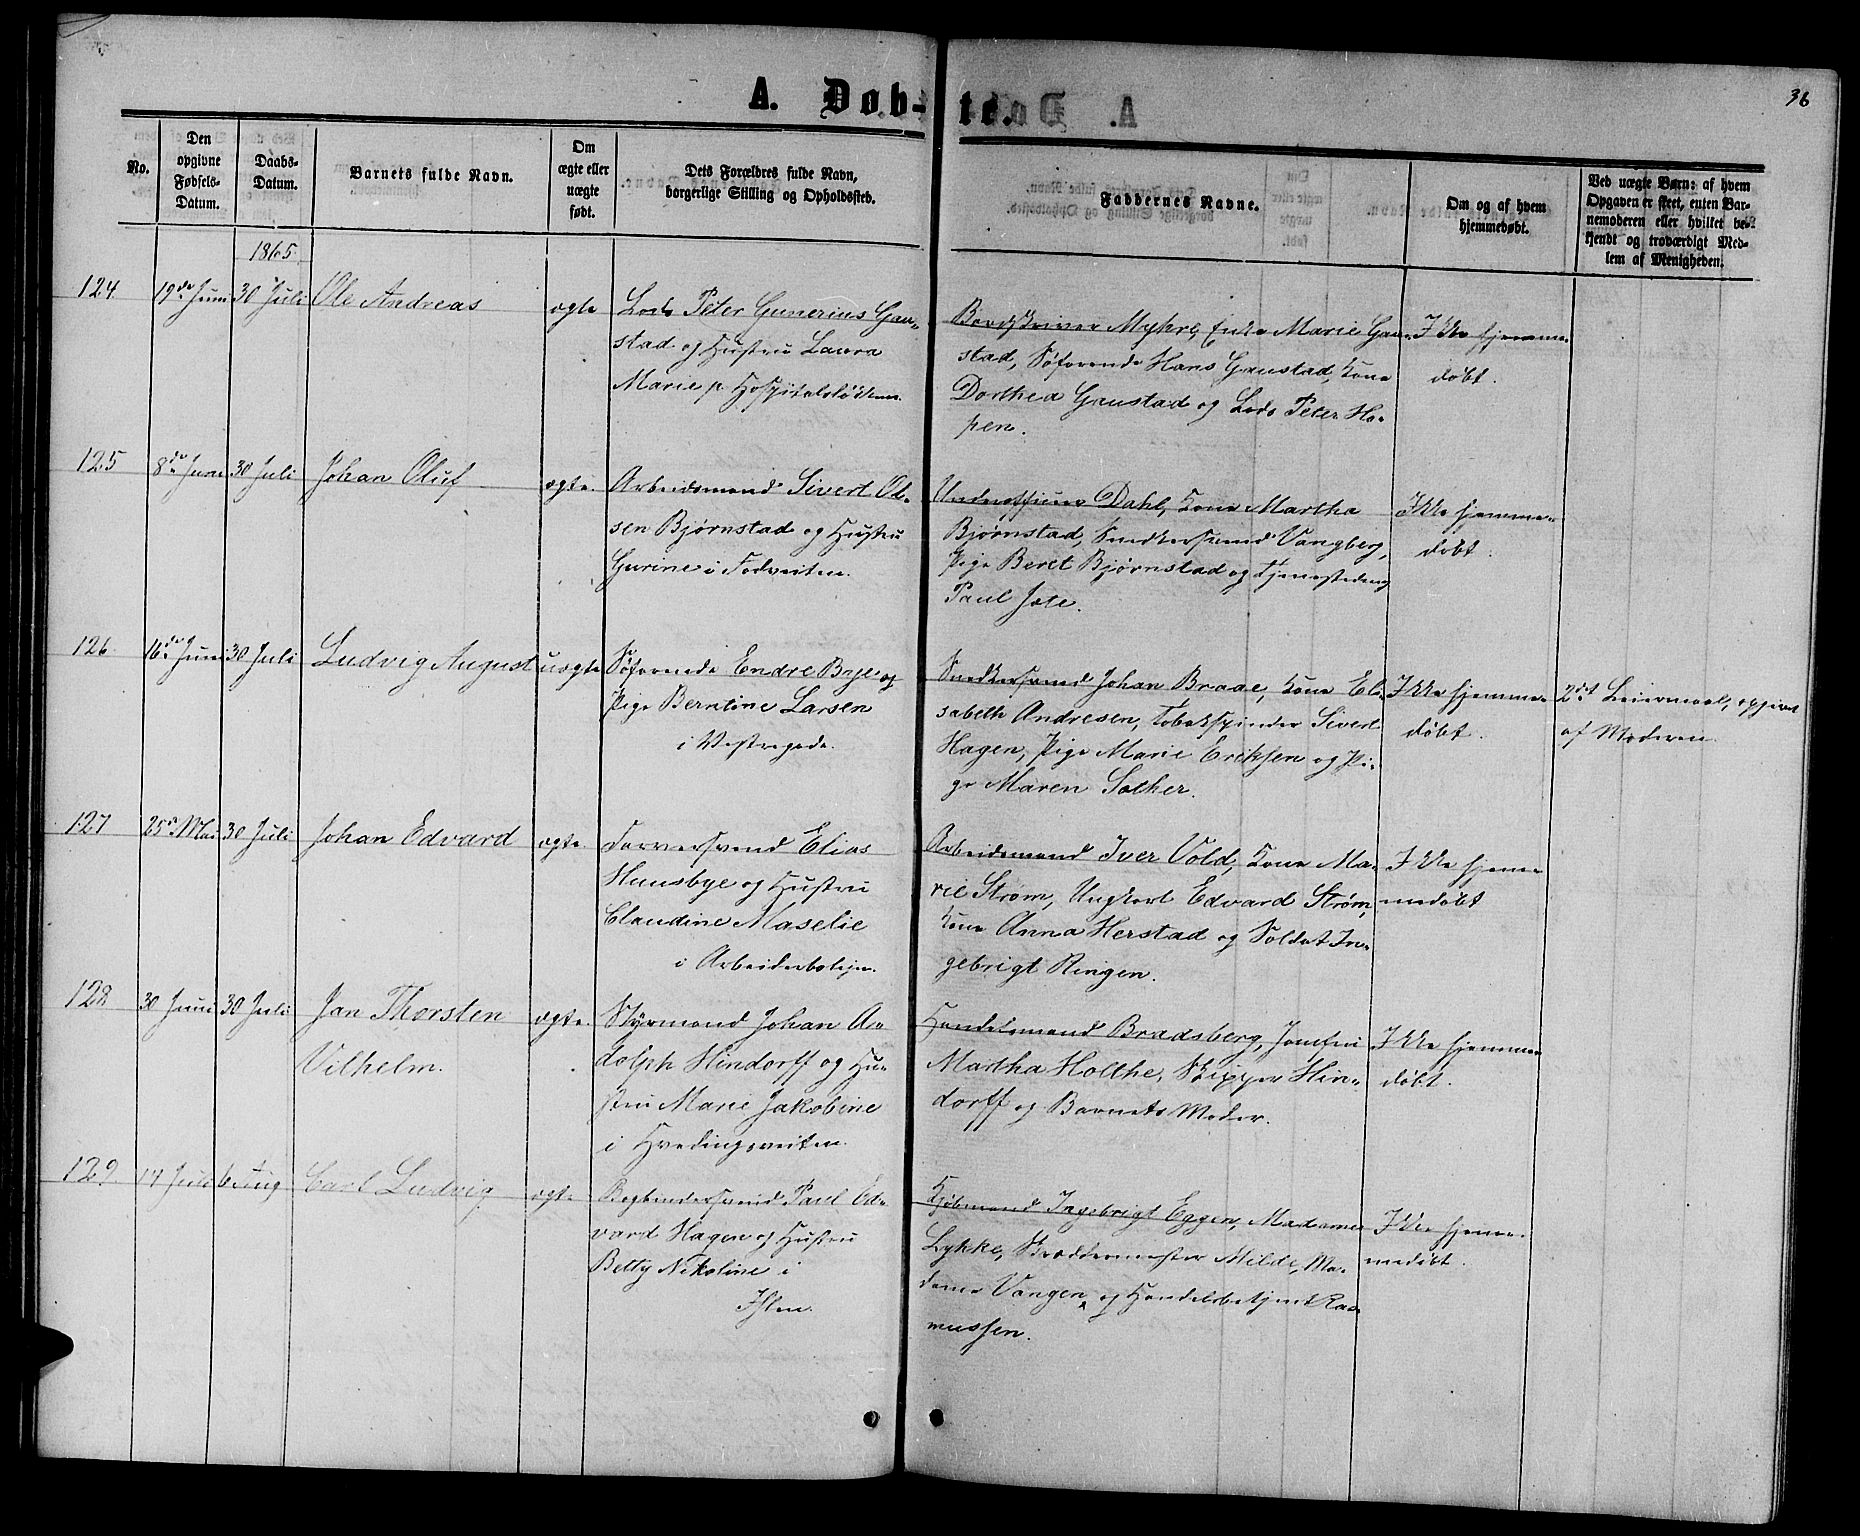 A. Døb-te.
36
No.
Den opgivne Fødsels-Datum.
Daabs-Datum.
Barnets fulde Navn.
Om ægte eller uægte født.
Dets Forældres fulde Navn, borgerlige Stilling og Opholdssted.
Faddernes Navne.
Om og af hvem hjemmedøbt.
Ved uægte Børn: af hvem Opgaven er skeet, enten Barnemoderen eller hvilket bekjendt og troværdigt Medlem af Menigheden.
1865.
124. 19de Juni 30 Juli Ole Andreas ægte
Lods Peter Gunerius Gau-
stad og Hustru Laura
Marie p. Hospitalsløkken.
Bordskriver Myhre, Enke Marie Gau-
stad, Søfarende Hans Gaustad, Kone
Dorthea Gaustad og Lods Peter Ho-
pen.
Ikke hjemme-
døbt.
125 8de Juni 30 Juli Johan Oluf ægte
Arbeidsmand Sivert Ol-
sen Bjørnstad og Hustru
Gurine i
Underofficeer Dahl, Kone Martha
Bjørnstad, Snedkersvend Vangberg,
Pige Beret Bjørnstad og Tjenestedreng
Paul
Ikke hjemme-
døbt.
126. 16de Juni 30 Juli Ludvig August uægte
Søfarende Endre Bye og
Pige Berntine Larsen
i Vestregade.
Snedkersvend Johan Braae, Kone El-
sabeth Andresen, Tobakspinder Sivert
Hagen, Pige Marie Eriksen og Pi-
ge Maren Solher.
Ikke hjemme-
døbt.
2det Leiermaal, opgivet
af Moderen.
127 25de Mai 30 Juli Johan Edvard ægte
Farversvend Elias
Huusbye og Hustru
Claudine Maselie
i Arbeiderbolign.
Arbeidsmand Iver Vold, Kone Ma-
rie Strøm, Ungkarl Edvard Strøm,
Kone Anna Herstad og Soldat In-
gebrigt Ringen.
Ikke hjem-
medøbt
128 30 Juni 30 Juli Jan Thorsten ægte
Vilhelm.
Styrmand Johan A-
dolph Hindorff og Hu-
stru Marie Jakobine
i Hvedingsveiten.
Handelsmand Bradsberg, Jomfru
Martha Holthe, Skipper Hin-
dorff og Barnets Moder.
Ikke hjemme-
døbt.
129. 17 Juli 6 Aug Carl Ludvig ægte
Bogbindersvend Paul Ed-
vard Hagen og Hustru
Betty Nikoline i
Ihlen.
Kjøbmand Ingebrigt Eggen, Madame
Lykke, Skræddermester Milde, Ma-
dame Vangen og Handelsbetjent Ras-
mussen.
Ikke hjem-
medøbt.